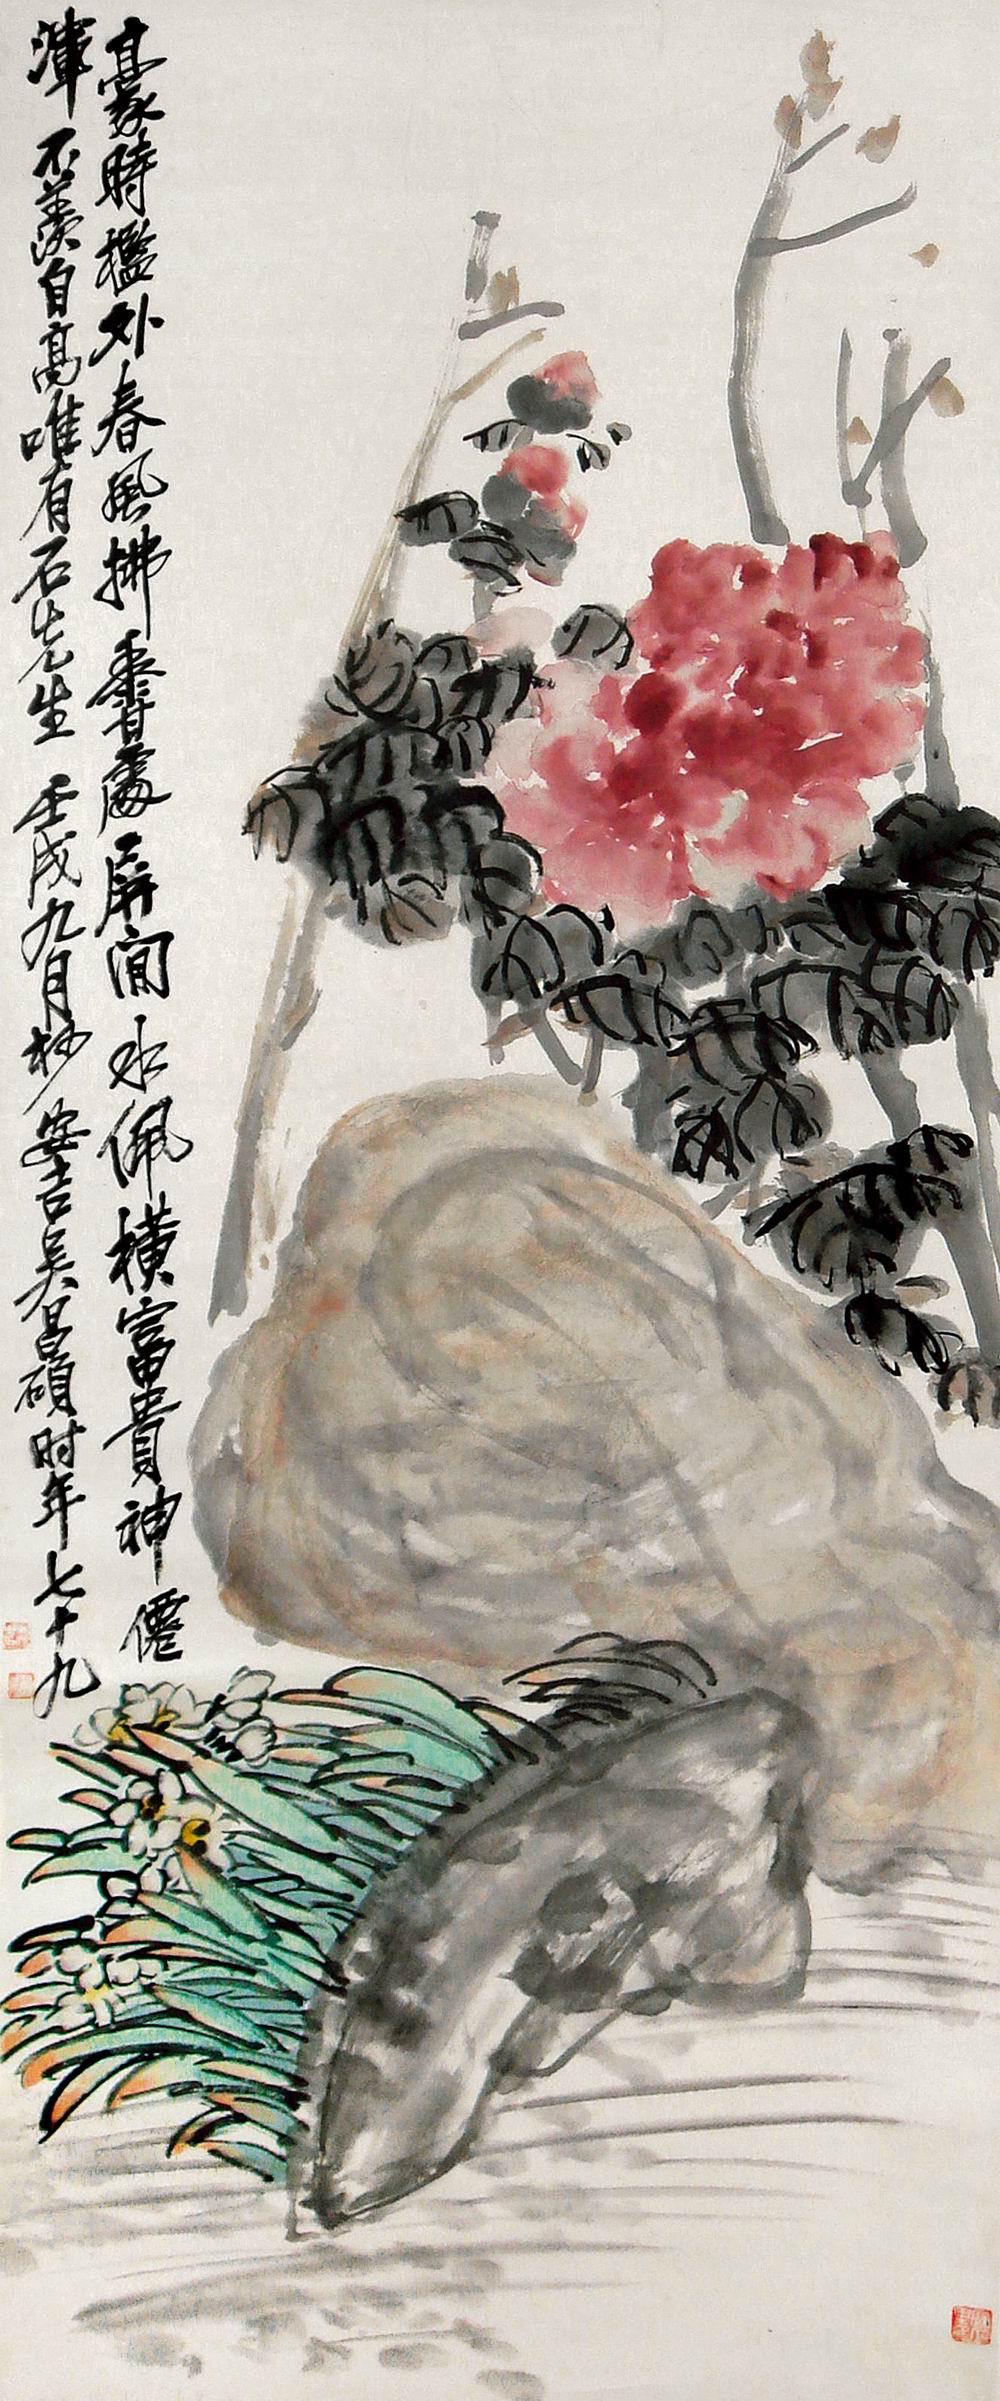 豪時檻外春風拂黍香處屏間水佩橫富貴神僊
渾不羨自高唯有石先生 壬戌九月杪安吉吳昌碩时年七十九